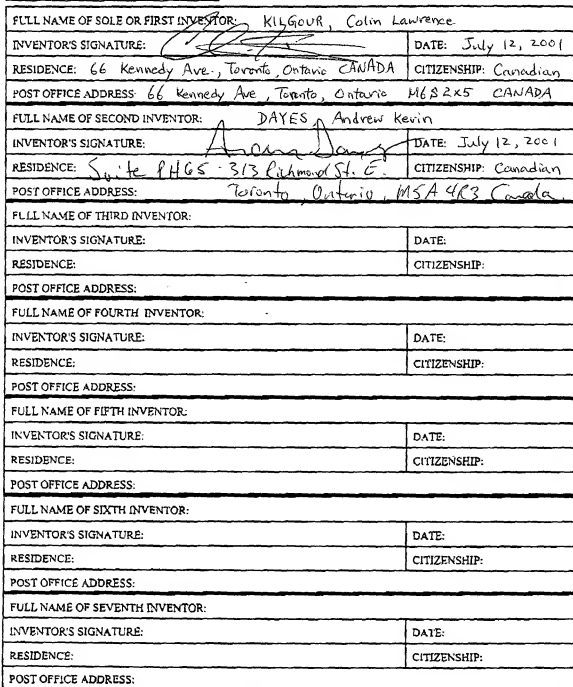 FULL NAME OF SOLE OR FIRST INVENTOR: KILGOUR, Colin Lawrence
INVENTOR'S SIGNATURE: DATE: July 12, 2001
RESIDENCE: 66 Kennedy Ave., Toronto, Ontario CANADA CITIZENSHIP: Canadian
POST OFFICE ADDRESS: 66 Kennedy Ave, Toronto, Ontario M6S 2X5 CANADA
FULL NAME OF SECOND INVENTOR: DAYES, Andrew Kevin
INVENTOR'S SIGNATURE: DATE: July 12, 2001
RESIDENCE: Suite PH65 - 313 Richmond St. E. CITIZENSHIP: Canadian
POST OFFICE ADDRESS: Toronto, Ontario, M5A 4R3 Canada
FULL NAME OF THIRD INVENTOR:
INVENTOR'S SIGNATURE: DATE:
RESIDENCE: CITIZENSHIP:
POST OFFICE ADDRESS:
FULL NAME OF FOURTH INVENTOR:
INVENTOR'S SIGNATURE: DATE:
RESIDENCE: CITIZENSHIP:
POST OFFICE ADDRESS:
FULL NAME OF FIFTH INVENTOR:
INVENTOR'S SIGNATURE: DATE:
RESIDENCE: CITIZENSHIP:
POST OFFICE ADDRESS:
FULL NAME OF SIXTH INVENTOR:
INVENTOR'S SIGNATURE: DATE:
RESIDENCE: CITIZENSHIP:
POST OFFICE ADDRESS:
FULL NAME OF SEVENTH INVENTOR:
INVENTOR'S SIGNATURE: DATE:
RESIDENCE: CITIZENSHIP:
POST OFFICE ADDRESS: